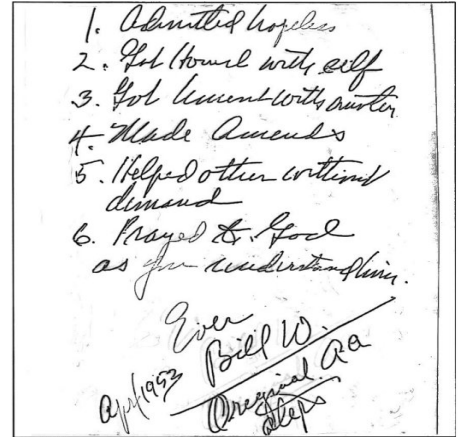 1. Admitted hopeless
2. Got honest with self
3. Got honest with another
4. Made amends
5. Helped other without
demand
6. Prayed to God
as you understand him.
Ever
Bill W.
Apr/1953
Original AA
Steps